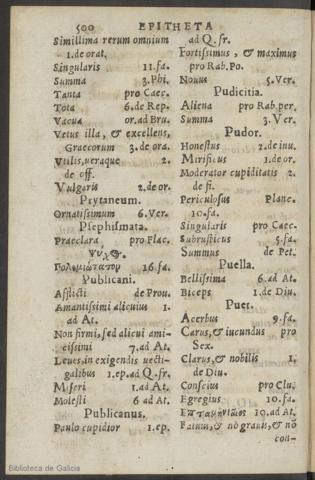 500 EPITHETA
Simillima rerum omnium
1.de orat.
Singularis 11.fa.
Summa 3.Phi.
Tanta pro Caec.
Tota 6.de Rep.
Vacua or.ad Bru.
Vetus illa, & excellens,
Graecorum 3.de ora.
Vtilis, ueraque 2.
de off.
Vulgaris 2.de or.
Prytaneum.
Ornatissimum 6.Ver.
Psephismata.
Praeclara pro Flac.
16.fa.
Publicani.
Afflicti de Prou.
Amantissimi alicuius 1.
ad At.
Non firmi, sed alicui ami-
cissimi 7.ad At.
Leues, in exigendis uecti-
galibus 1.ep.ad Q.fr.
Miseri 1.ad At.
Molesti 6 ad At.
Publicanus.
Paulo cupidior 1.ep.
ad Q.fr.
Fortissimus, & maximus
pro Rab.Po.
Nouus 5.Ver.
Pudicitia.
Aliena pro Rab.per.
Summa 3.Ver.
Pudor.
Honestus 2.de inu.
Mirificus 1.de or.
Moderator cupiditatis 2.
de fi.
Periculosus Planc.
10.fa.
Singularis pro Caec.
Subrusticus 5.fa.
Summus de Pet.
Puella.
Bellissima 6.ad At.
Biceps 1.de Diu.
Puer.
Acerbus 9.fa.
Carus, & iucundus pro
Sex.
Clarus, & nobilis 1.
de Diu.
Conscius pro Clu.
Egregius 10.fa.
10.ad At.
Fatuus, & nō grauis, & nō
con-
Biblioteca de Galicia